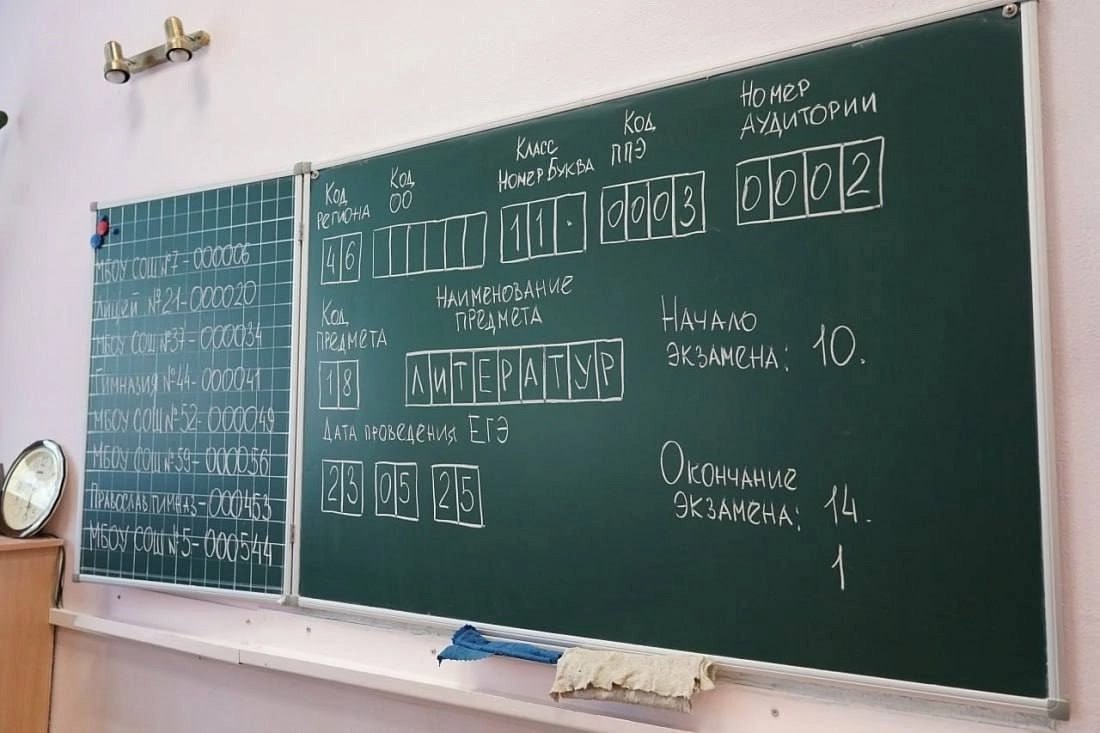 МБОУ СОШ №7 - 000006
Лицей №21 - 000020
МБОУ СОШ №37 - 000034
Гимназия №44 - 000041
МБОУ СОШ №52 - 000049
МБОУ СОШ №59 - 000056
Православ гимназ - 000463
МБОУ СОШ №5 - 000544
Код региона
46
Код ОО
Класс
Номер Буква
11.
Код ППЭ
0003
Номер
аудитории
0002
Код
предмета
18
Наименование
предмета
ЛИТЕРАТУР
Дата проведения ЕГЭ
23 05 25
Начало
экзамена: 10.
Окончание
экзамена: 14.
1